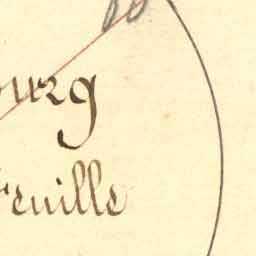 ourg
Feuille